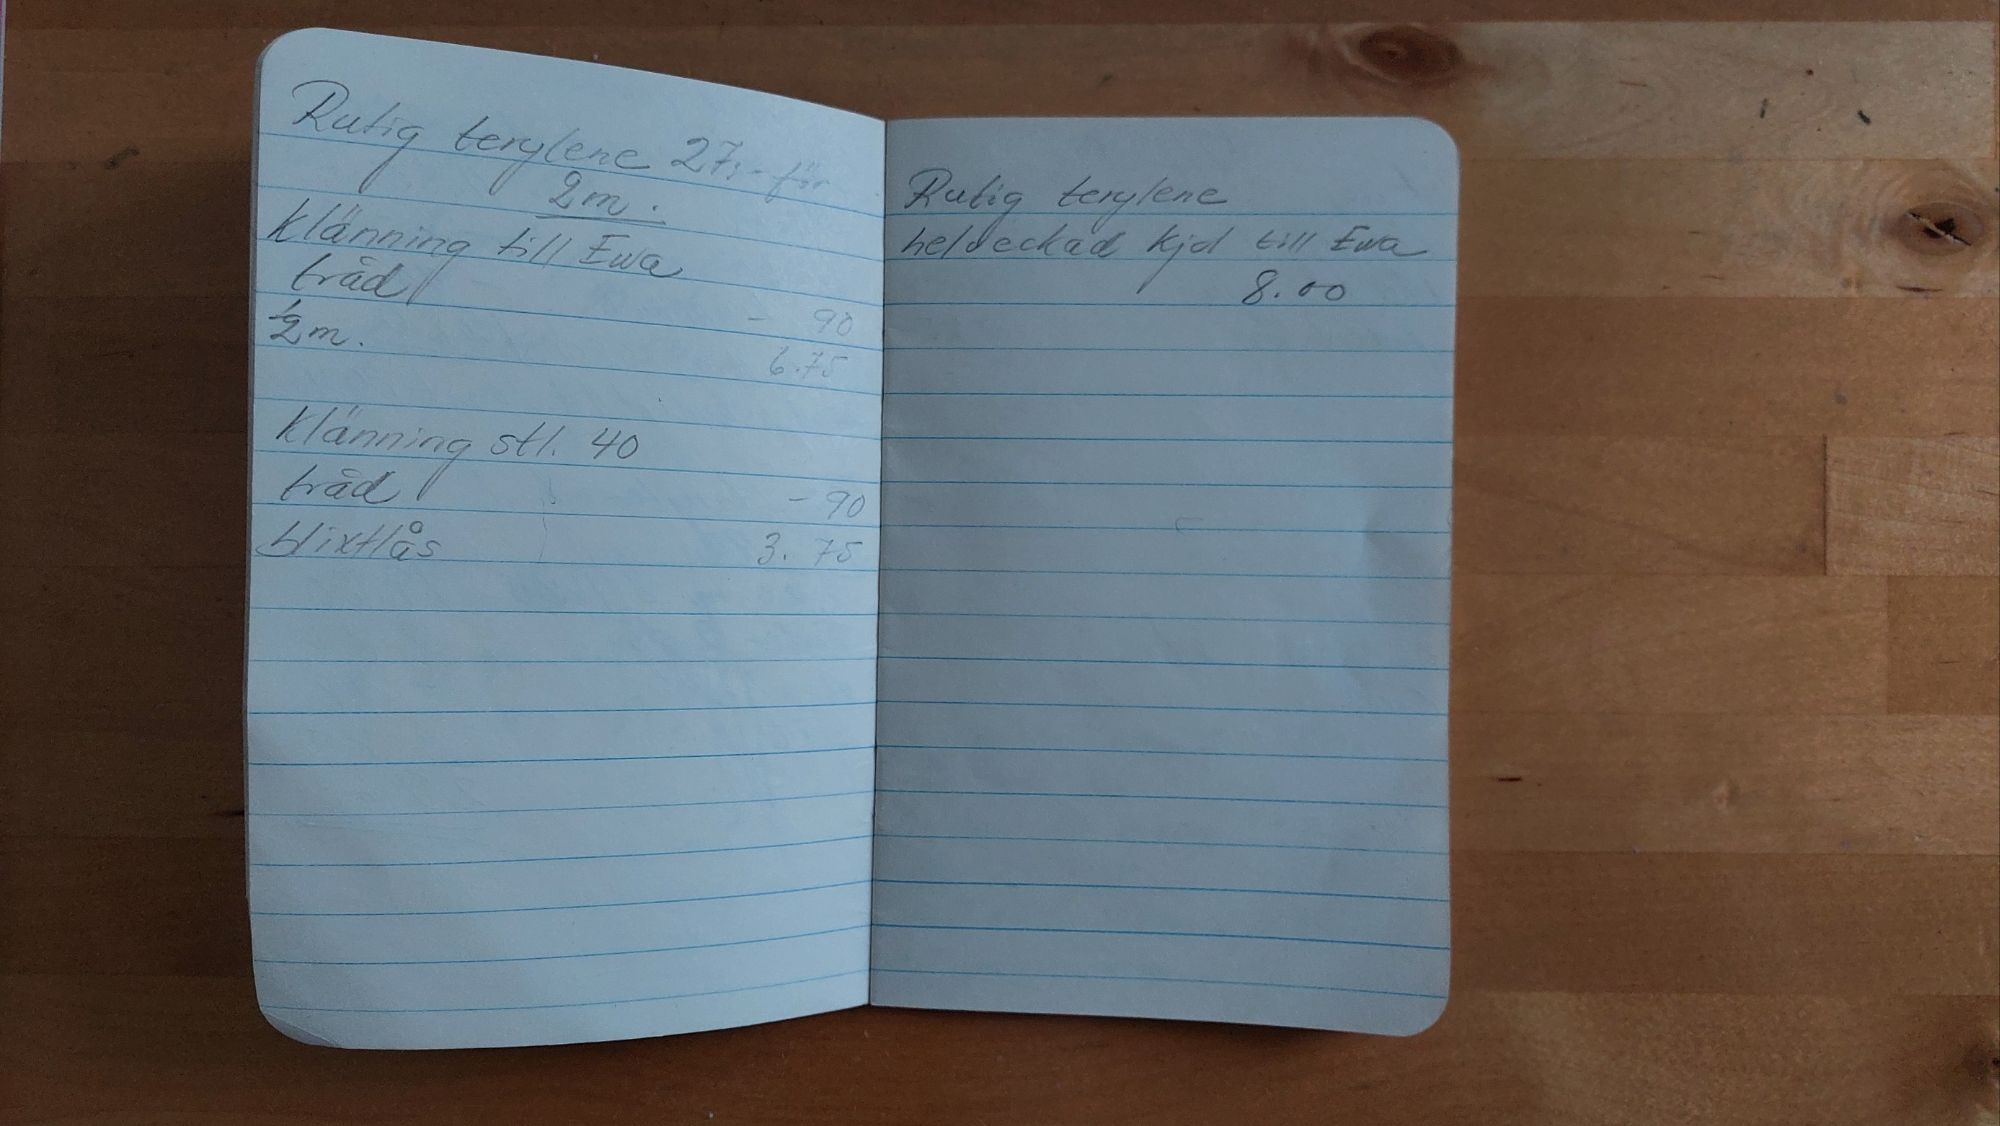 Rutig terylene 27:- för
2 m.
Klänning till Ewa
tråd - 90
½ m. 6.75
Klänning stl. 40
tråd - 90
blixtlås 3.75
Rutig terylene
helveckad kjol till Ewa
8.00